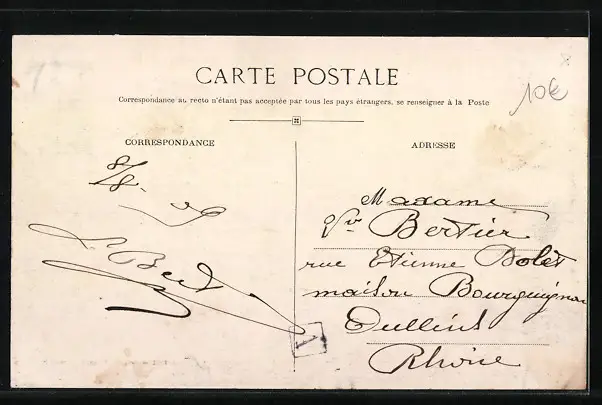 CARTE POSTALE
Correspondance au recto n'étant pas acceptée par tous les pays étrangers, se renseigner à la Poste
10€
CORRESPONDANCE
ADRESSE
8/8.
Madame
Vv Bertier
rue Etienne Dolet
maison Bourguignon
Oullins
Rhône
1